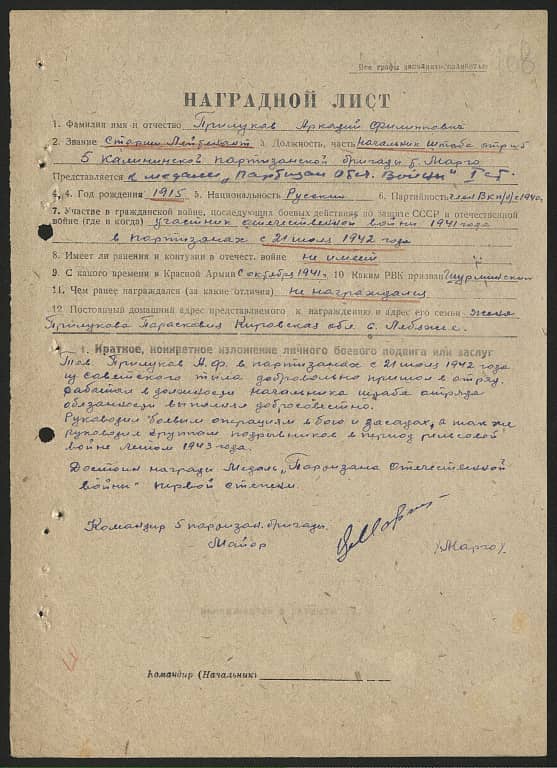 Все графы заполнять полностью
168
НАГРАДНОЙ ЛИСТ
1. Фамилия имя и отчество Прилуков Аркадий Филиппович
2. Звание Старший Лейтенант 3. Должность, часть Начальник штаба отряда
5 Калининской партизанской бригады т. Марго
Представляется к медали „Партизан Отеч. Войны" I ст.
4. Год рождения 1915 5. Национальность Русский 6. Партийность член ВКП(б) с 1940г.
7. Участие в гражданской войне, последующих боевых действиях по защите СССР и отечественной
войне (где и когда) участник отечественной войны 1941 года
в партизанах с 21 июля 1942 года
8. Имеет ли ранения и контузии в отечест. войне не имеет
9. С какого времени в Красной Армии С октября 1941г. 10 Каким РВК призван Шурминским
11. Чем ранее награждался (за какие отличия) не награждался
12 Постоянный домашний адрес представляемого к награждению и адрес его семьи жена
Прилукова Парасковия Кировская обл с. Лебяжье
1. Краткое, конкретное изложение личного боевого подвига или заслуг
Тов. Прилуков А.Ф. в партизанах с 21 июля 1942 года
из советского тыла добровольно пришол в отряд.
Работал в должности начальника штаба отряда
обязанности выполнял добросовестно.
Руководил боевым операциям в бою и засадах, а так же
руководил группой подрывников в период рельсовой
войне летом 1943 года.
Достоин награды Медаль „Партизана Отечественной
войны" первой степени.
Командир 5 партизан. бригады
Майор /Марго/
Командир (Начальник)